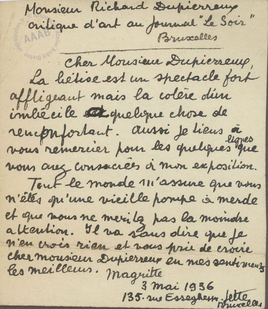 Monsieur Richard Dupierreux
critique d'art au journal "Le Soir"
Bruxelles
Cher Monsieur Dupierreux,
La bêtise est un spectacle fort
affligeant mais la colère d'un
imbécile a quelque chose de
réconfortant. Aussi je tiens à
vous remercier pour les quelques lignes que
vous avez consacrées à mon exposition.
Tout le monde m'assure que vous
n'êtes qu'une vieille pompe à merde
et que vous ne méritez pas la moindre
attention. Il va sans dire que je
n'en crois rien et vous prie de croire
cher monsieur Dupierreux en mes sentiments
les meilleurs. Magritte
3 mai 1936
135 rue Esseghem Jette
Bruxelles
AAAB